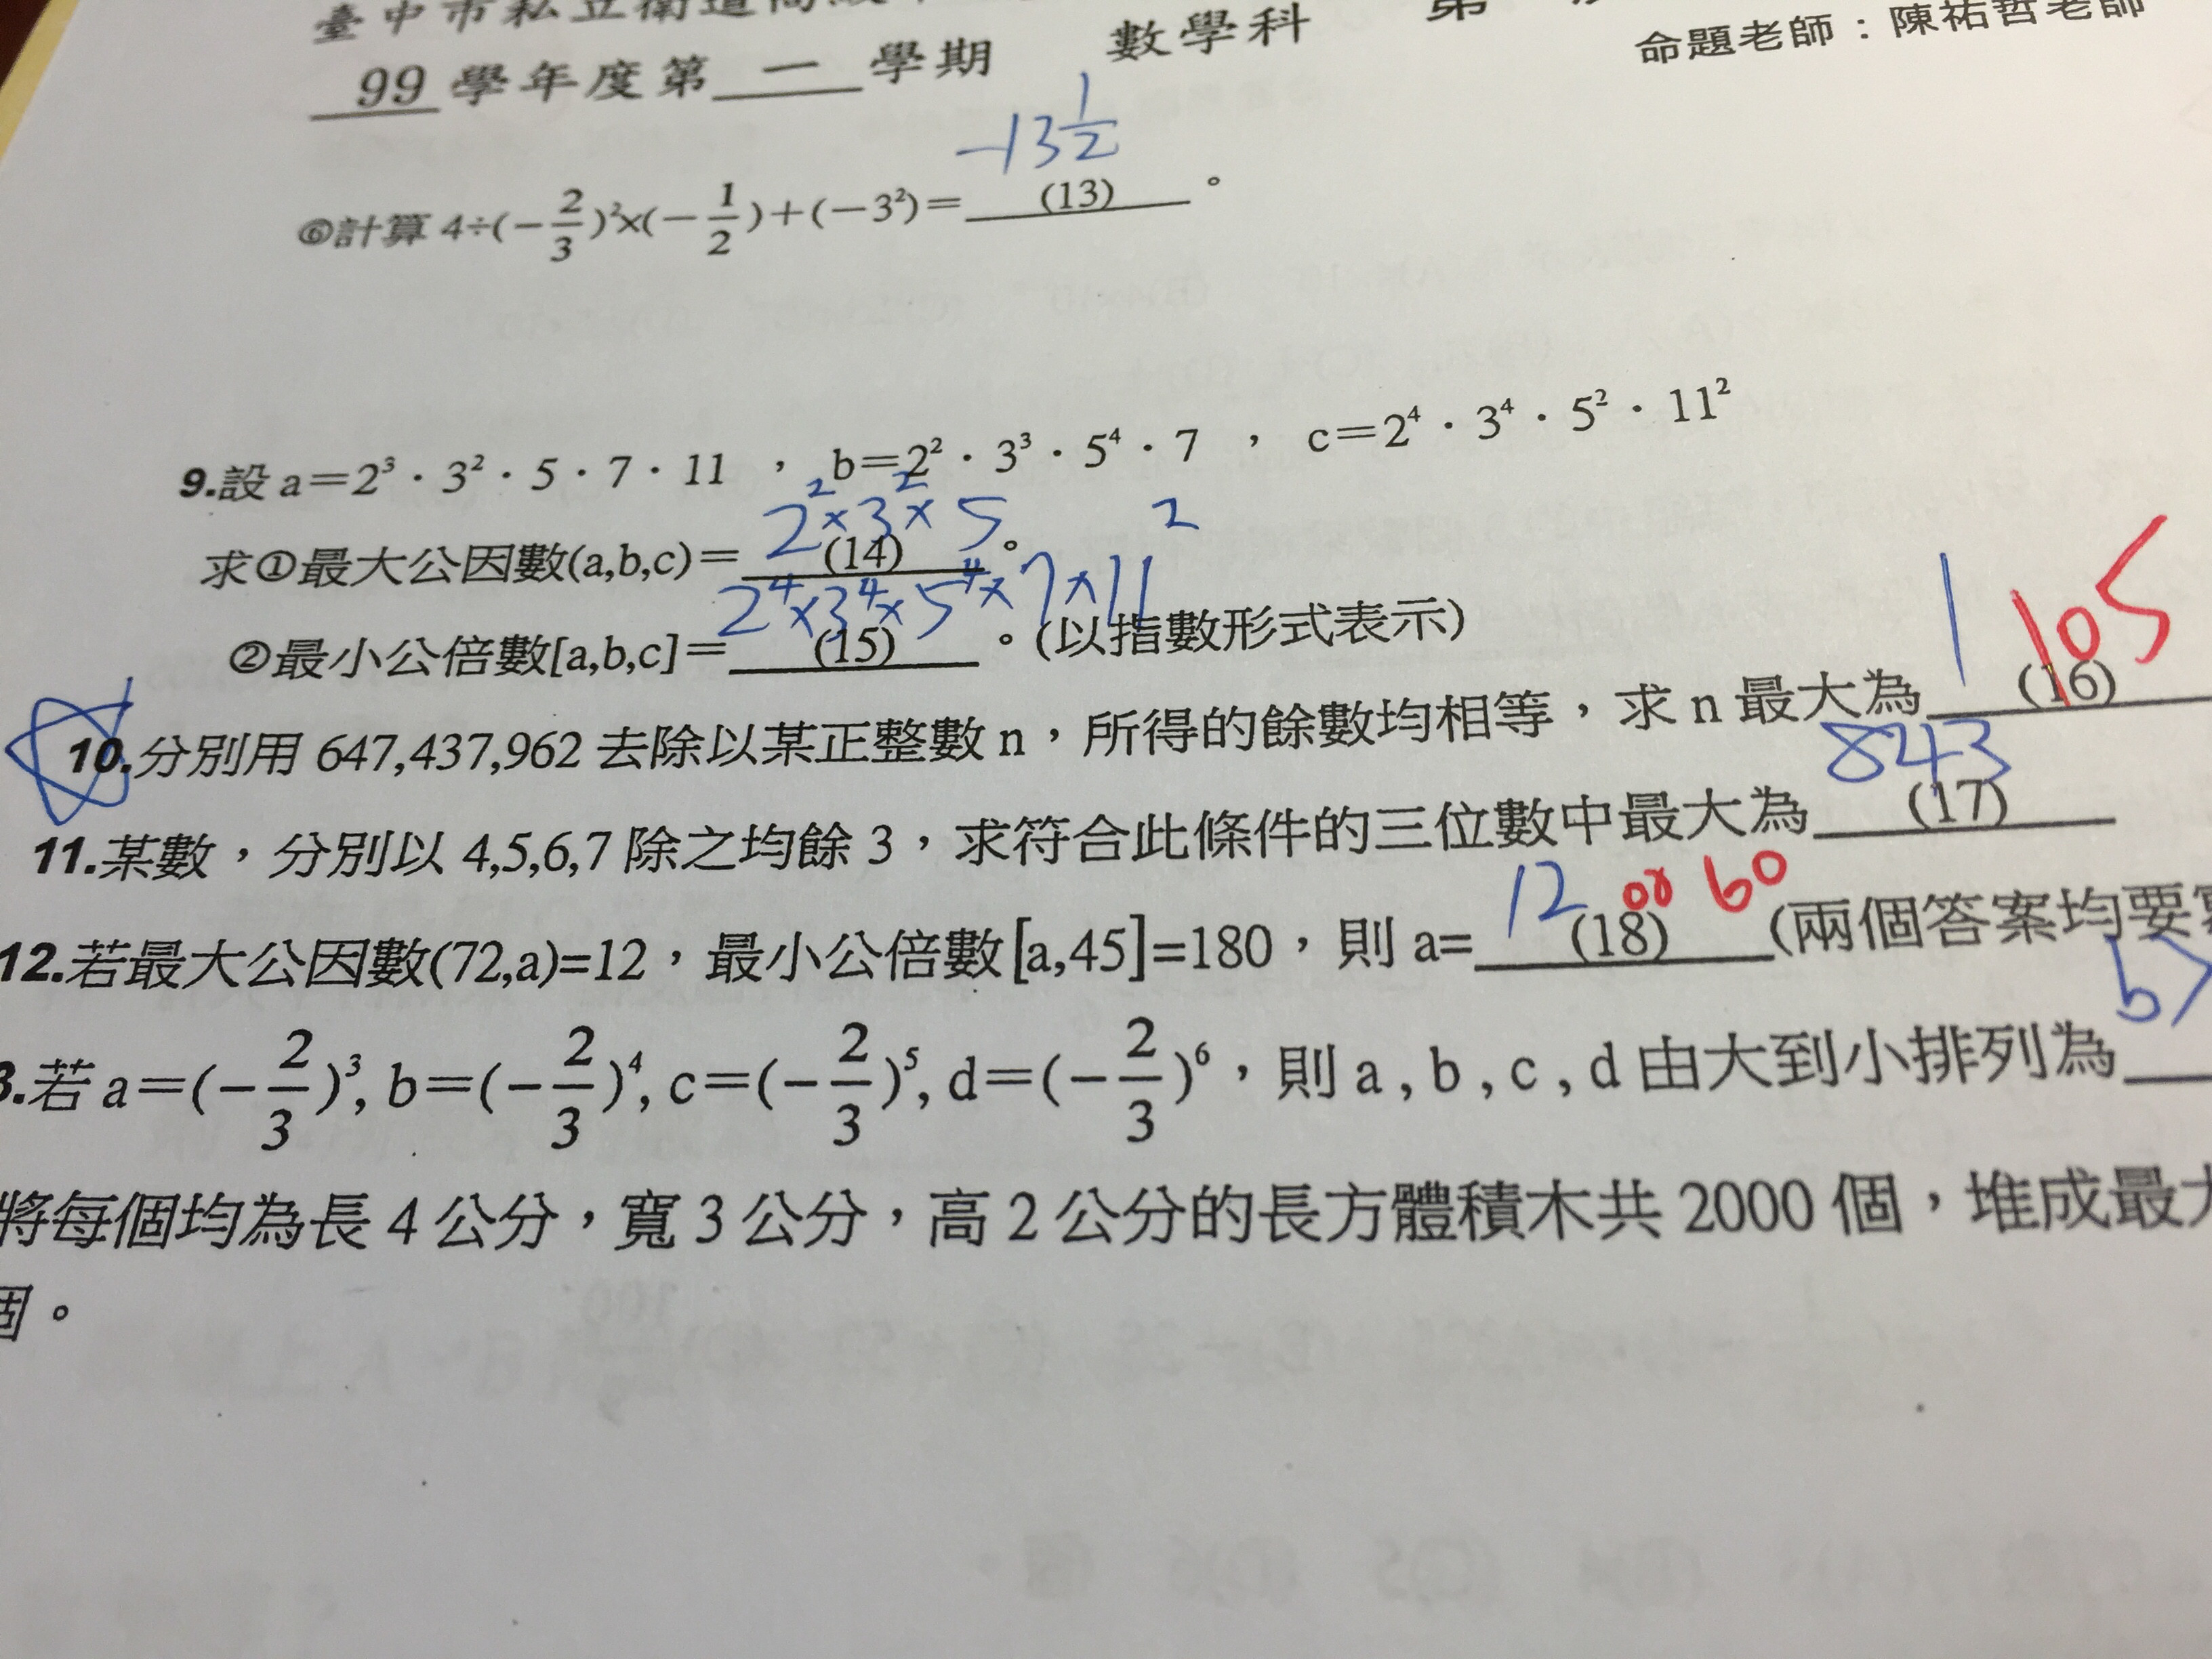 臺中市私立衛道高級
99 學年度第 一 學期 數學科 第
命題老師：陳祐哲老師
-13 1/2
⑥計算 4÷(-2/3)²×(-1/2)+(-3²)= (13) 。
9.設 a=2³·3²·5·7·11 ， b=2²·3³·5⁴·7 ， c=2⁴·3⁴·5²·11²
2²×3²×5
求①最大公因數(a,b,c)= (14) 。
2⁴×3⁴×5⁴×7×11²
②最小公倍數[a,b,c]= (15) 。(以指數形式表示)
1 105
10.分別用 647,437,962 去除以某正整數 n，所得的餘數均相等，求 n 最大為 (16)
843
11.某數，分別以 4,5,6,7 除之均餘 3，求符合此條件的三位數中最大為 (17)
12 or 60
12.若最大公因數(72,a)=12，最小公倍數[a,45]=180，則 a= (18) (兩個答案均要
b>
3.若 a=(-2/3)³, b=(-2/3)⁴, c=(-2/3)⁵, d=(-2/3)⁶，則 a , b , c , d 由大到小排列為
將每個均為長 4 公分，寬 3 公分，高 2 公分的長方體積木共 2000 個，堆成最
個。